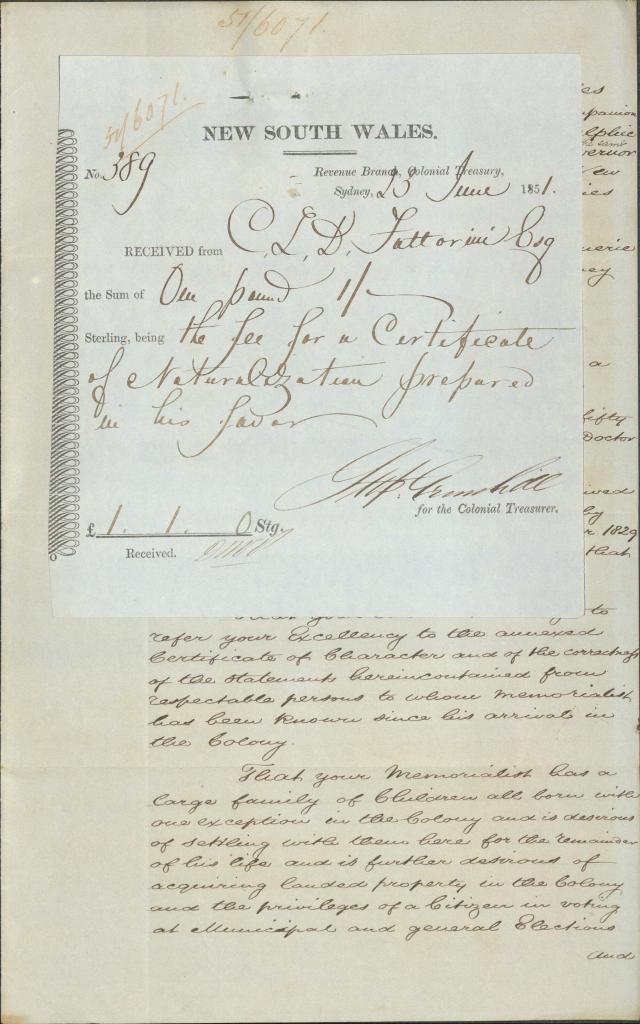 51/6071.
51/6071.
NEW SOUTH WALES.
No. 389
Revenue Branch, Colonial Treasury,
Sydney, 23 June 1851.
RECEIVED from C. L. D. Fattorini Esq
the Sum of One pound 1/-
Sterling, being the fee for a Certificate
of Naturalization prepared
in his favor
for the Colonial Treasurer.
£ 1. 1. 0 Stg.
Received.
Governor
New
a
fifty
Doctor
by
1829
that
to
refer your Excellency to the annexed
Certificate of Character and of the correctness
of the statements herein contained from
respectable persons to whom Memorialist
has been known since his arrival in
the Colony.
That your Memorialist has a
large family of Children all born with
one exception in the Colony and is desirous
of settling with them here for the remainder
of his life and is further desirous of
acquiring landed property in the Colony
and the privileges of a Citizen in voting
at Municipal and general Elections
and